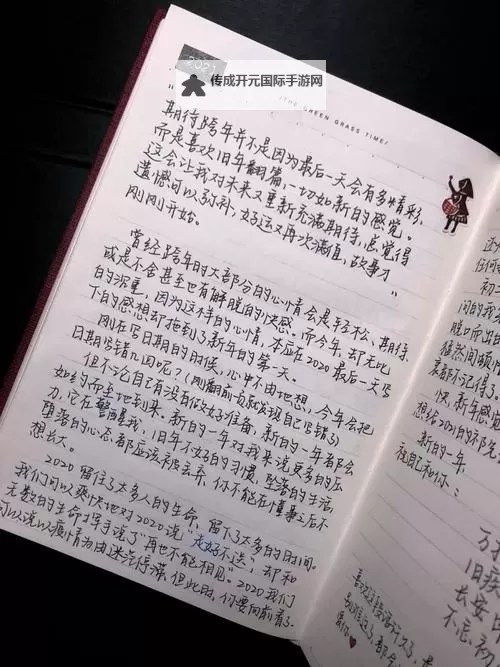 2021
传成开元国际手游网
THE GREEN GRASS TIME!
"
期待跨年并不是因为最后一天会有多精彩,
而是喜欢旧年翻篇,一切如新的感觉。
这会让我对未来又重新充满期待,总觉得
遗憾可以弥补,好运又再次满值,故事才
刚刚开始。"
曾经跨年的大部分的心情会是轻松、期待、
或是不舍甚至也有解脱的快感。而今年,却无比
的沉重,因为这样的心情,本应在2020最后一天写
下的感想却拖到了新年的第一天。
刚在写日期的时候,心中不由地想,今年会把
日期写错几回呢?(刚翻前页就发现自己写错了)
但不论自己有没有做好准备,新的一年都会
如约而至地到来。新的一年对我来说更多的压
力,它在警醒我,旧年不好的习惯,坠落的生活,
堕落的心态都应该被丢弃,你不能在懂事之后不
想长大。
2020留住了太多人的生命,留下了太多的时间。
我们可以爽快地对2020说"走好不送",却和
无数的生命挥手说了"再也不能相见"。2020我们
可以说以疫情为由迷茫停滞,但此时,你要向前看了。
还
任何
初二
闲的我
脱口而出
想给2021的
新的一年,
祝自己和你:
万
旧
长安
不忘初